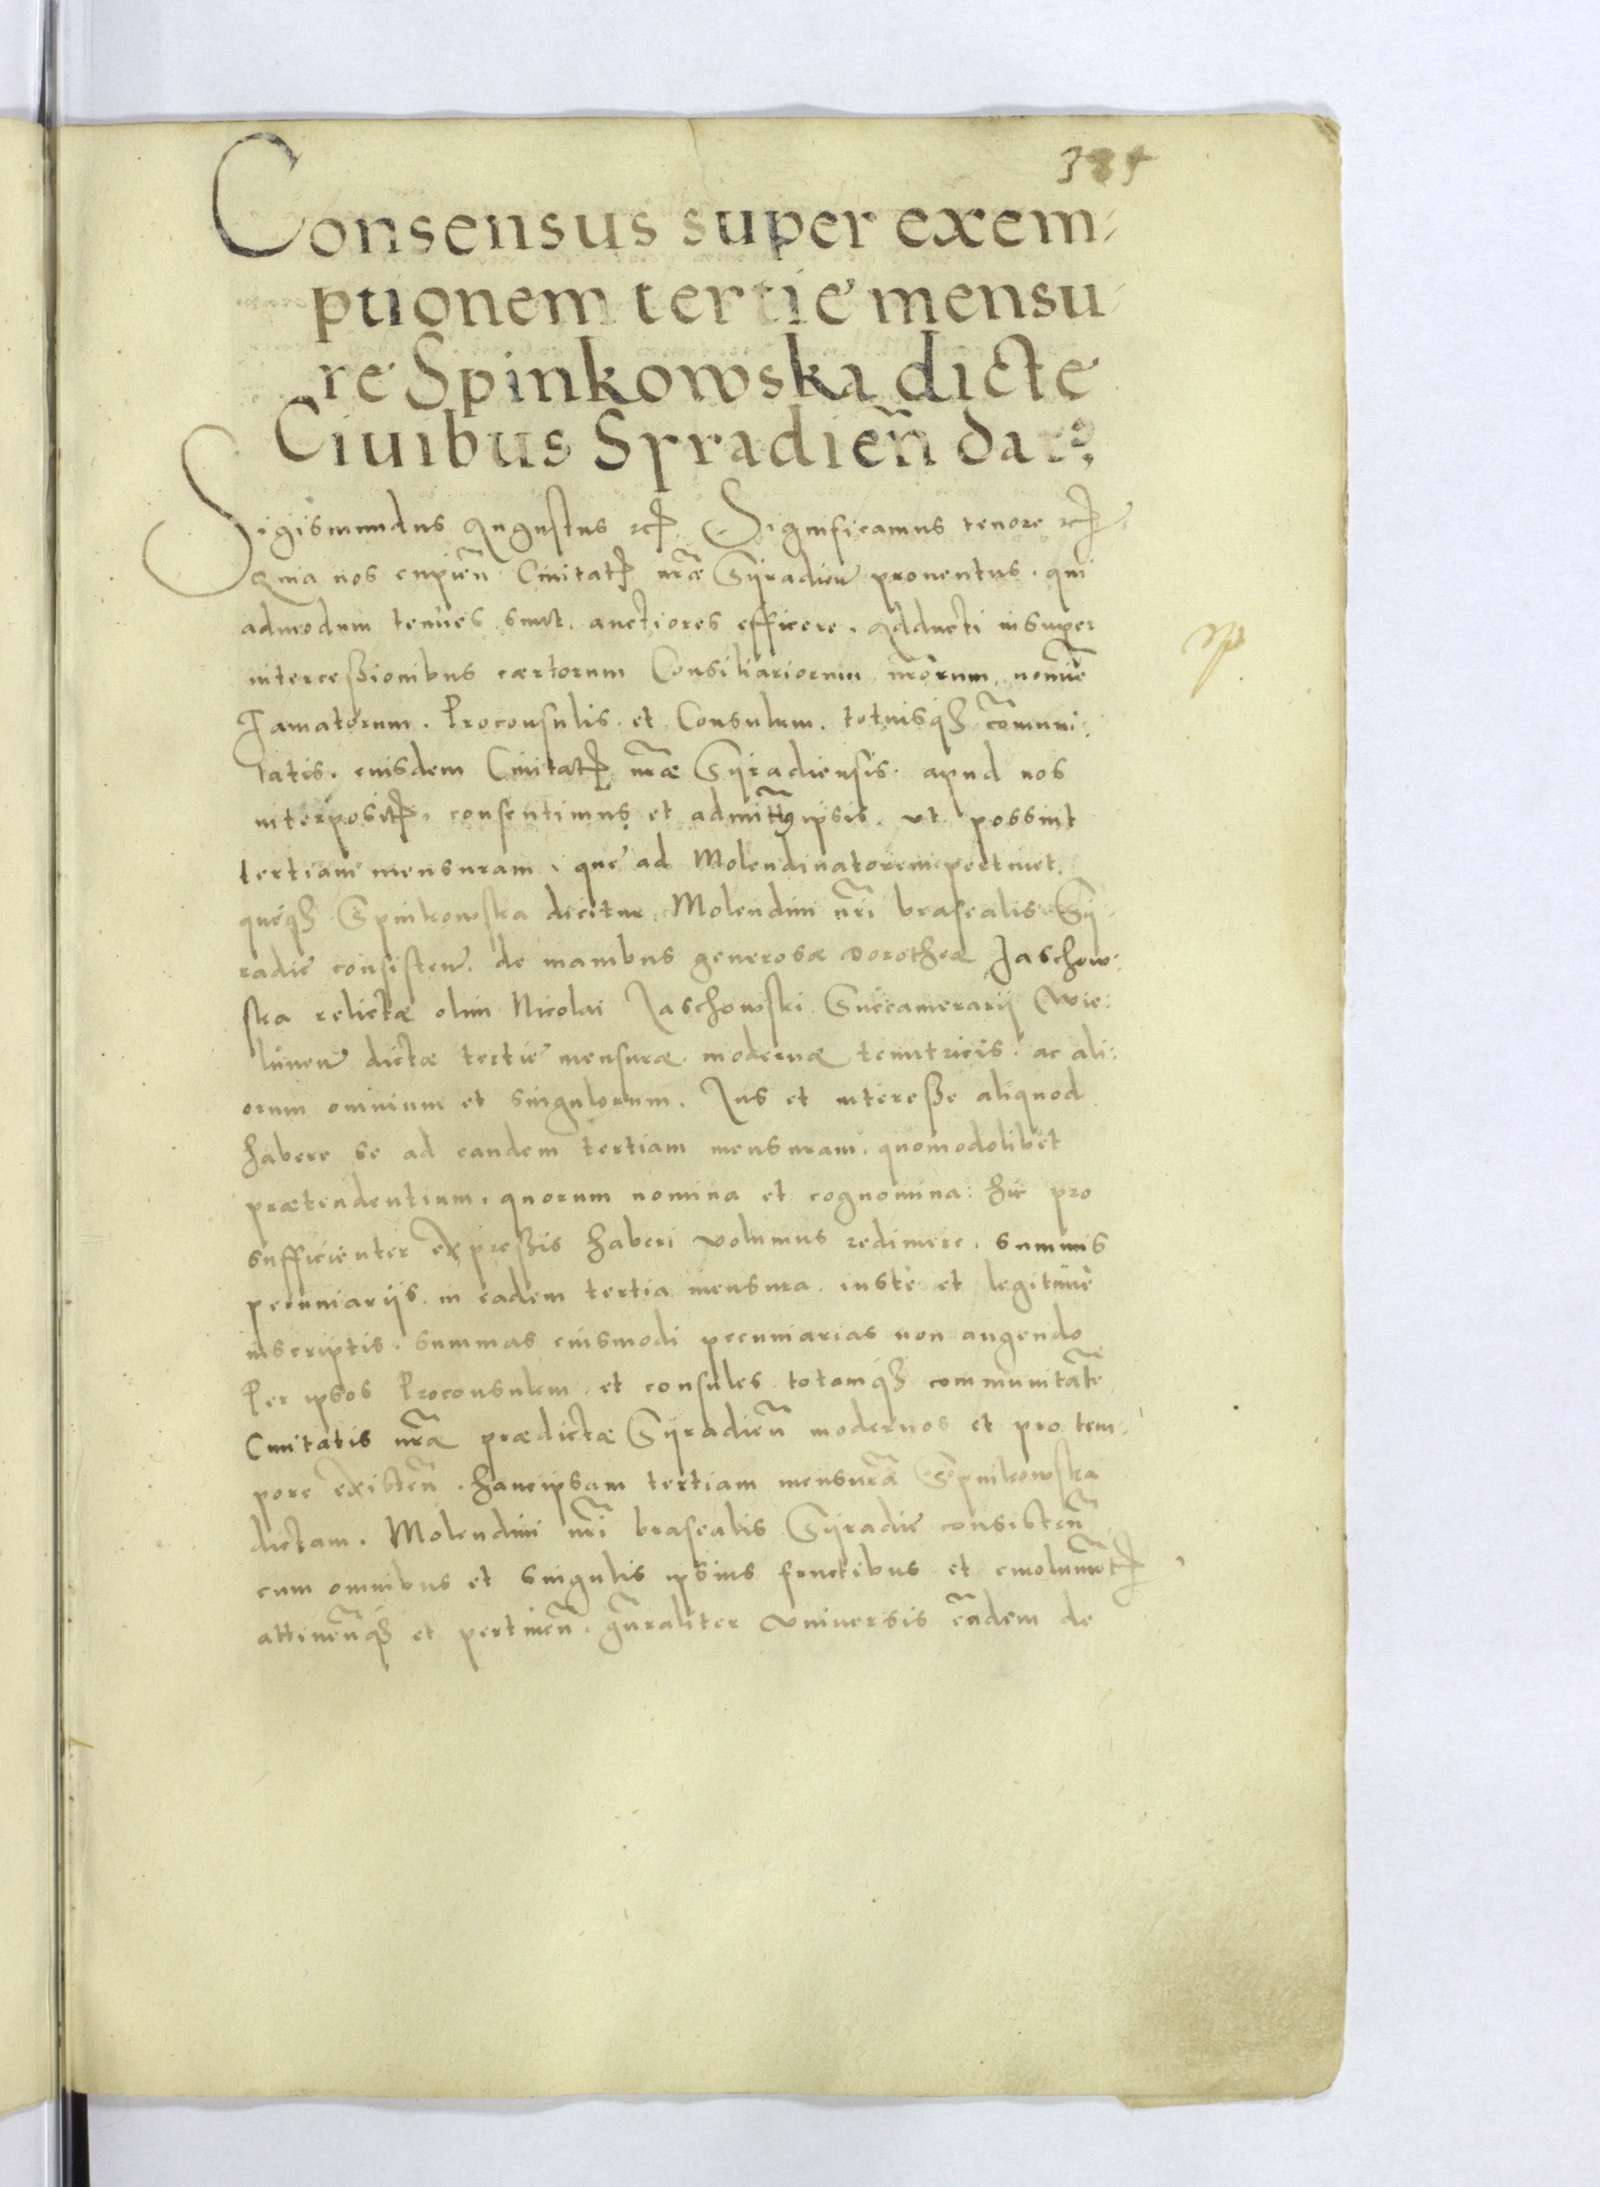 385
Consensus super exem-
ptionem tertie mensu-
re Spinkowska dicte
Ciuibus Syradien̄ dat⁊
Sigismundus Augustus etc. Significamus tenore etc.
Quia nos cupien̄ Ciuitatꝭ nr̄æ Syradien̄ prouentus, qui
admodum tenues sunt, auctiores efficere. Adducti insuper
intercessionibus certorum Consiliariorum nr̄orum, nomīe
famatorum, Proconsulis et Consulum, totiusq₃ com̄uni-
tatis, eiusdem Ciuitatꝭ nr̄æ Syradiensis, apud nos
interpositꝭ, consentimus et admittimꝰ ipsis, vt possint
tertiam mensuram, que ad Molendinatorem pertinet,
quęq₃ Spinkowska dicitur, Molendini nr̄i brasealis Sy-
radie consisten̄, de manibus generosæ Dorotheæ Jaschow-
ska relictæ olim Nicolai Jaschowski Succamerarij Wie-
lunen̄ dictæ tertie mensuræ modernæ tenutricis, ac ali-
orum omnium et singulorum, Jus et interesse aliquod
habere se ad eandem tertiam mensuram, quomodolibet
prætendentium, quorum nomina et cognomina hic pro
sufficienter expressis haberi volumus redimere, summis
pecuniarijs in eadem tertia mensura iustè et legitimè
inscriptis, summas eiusmodi pecuniarias non augendo
Per ipsos Proconsulem et consules totamq₃ communitatē
Ciuitatis nr̄æ prædictæ Syradien̄ modernos et pro tem-
pore existen̄, hancipsam tertiam mensurā Spinkowska
dictam, Molendini nr̄i brasealis Syradie consisten̄
cum omnibus et singulis ipsius fructibus et emolumētꝭ
attinen̄q₃ et pertinen̄, gn̄raliter vniuersis eādem de